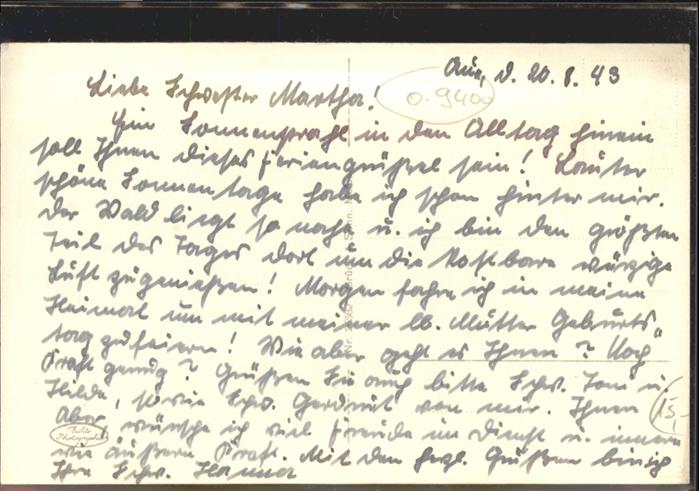 Aue, d. 20. 8. 43
Liebe Schwester Martha!
0.9400
Ein Sonnenstrahl in den Alltag hinein
soll Ihnen dieses Feriengrüßel sein! Lauter
schöne Sonnentage habe ich schon hinter mir.
Der Wald liegt so nahe u. ich bin den größten
Teil des Tages dort um die kostbare würzige
Luft zu genießen! Morgen fahre ich in meine
Heimat um mit meiner lb. Mutter Geburts-
tag zu feiern! Wie aber geht es Ihnen? Noch
Kraft genug? Grüßen Sie auch bitte Schw. Toni u.
Hilde, sowie Schw. Gerdrut von mir. Ihnen
15,-
Aber wünsche ich viel Freude im Dienst u. innere
wie äußere Kraft. Mit den herzl. Grüßen bin ich
Ihre Schw. Hanna